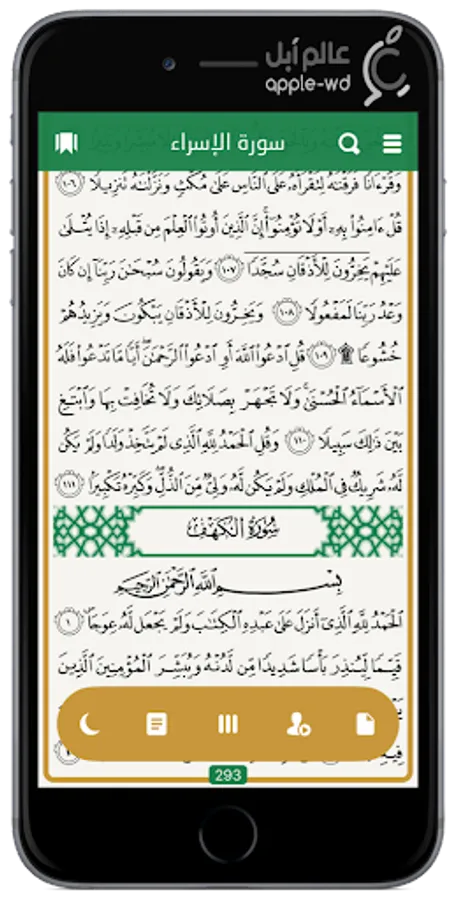 عالم أبل
apple-wd
سورة الإسراء
وَقُرْءَانًا فَرَقْنَٰهُ لِتَقْرَأَهُۥ عَلَى ٱلنَّاسِ عَلَىٰ مُكْثٍ وَنَزَّلْنَٰهُ تَنزِيلًا ١٠٦
قُلْ ءَامِنُوا۟ بِهِۦٓ أَوْ لَا تُؤْمِنُوٓا۟ إِنَّ ٱلَّذِينَ أُوتُوا۟ ٱلْعِلْمَ مِن قَبْلِهِۦٓ إِذَا يُتْلَىٰ
عَلَيْهِمْ يَخِرُّونَ لِلْأَذْقَانِ سُجَّدًا ١٠٧ وَيَقُولُونَ سُبْحَٰنَ رَبِّنَآ إِن كَانَ
وَعْدُ رَبِّنَا لَمَفْعُولًا ١٠٨ وَيَخِرُّونَ لِلْأَذْقَانِ يَبْكُونَ وَيَزِيدُهُمْ
خُشُوعًا ۩ ١٠٩ قُلِ ٱدْعُوا۟ ٱللَّهَ أَوِ ٱدْعُوا۟ ٱلرَّحْمَٰنَ ۖ أَيًّا مَّا تَدْعُوا۟ فَلَهُ
ٱلْأَسْمَآءُ ٱلْحُسْنَىٰ ۚ وَلَا تَجْهَرْ بِصَلَاتِكَ وَلَا تُخَافِتْ بِهَا وَٱبْتَغِ
بَيْنَ ذَٰلِكَ سَبِيلًا ١١٠ وَقُلِ ٱلْحَمْدُ لِلَّهِ ٱلَّذِى لَمْ يَتَّخِذْ وَلَدًا وَلَمْ يَكُن
لَّهُۥ شَرِيكٌ فِى ٱلْمُلْكِ وَلَمْ يَكُن لَّهُۥ وَلِىٌّ مِّنَ ٱلذُّلِّ ۖ وَكَبِّرْهُ تَكْبِيرًۢا ١١١
سُورَةُ الكَهْفِ
بِسْمِ ٱللَّهِ ٱلرَّحْمَٰنِ ٱلرَّحِيمِ
ٱلْحَمْدُ لِلَّهِ ٱلَّذِىٓ أَنزَلَ عَلَىٰ عَبْدِهِ ٱلْكِتَٰبَ وَلَمْ يَجْعَل لَّهُۥ عِوَجَا ۜ ١
قَيِّمًا لِّيُنذِرَ بَأْسًا شَدِيدًا مِّن لَّدُنْهُ وَيُبَشِّرَ ٱلْمُؤْمِنِينَ ٱلَّذِينَ
فِيهِ
293